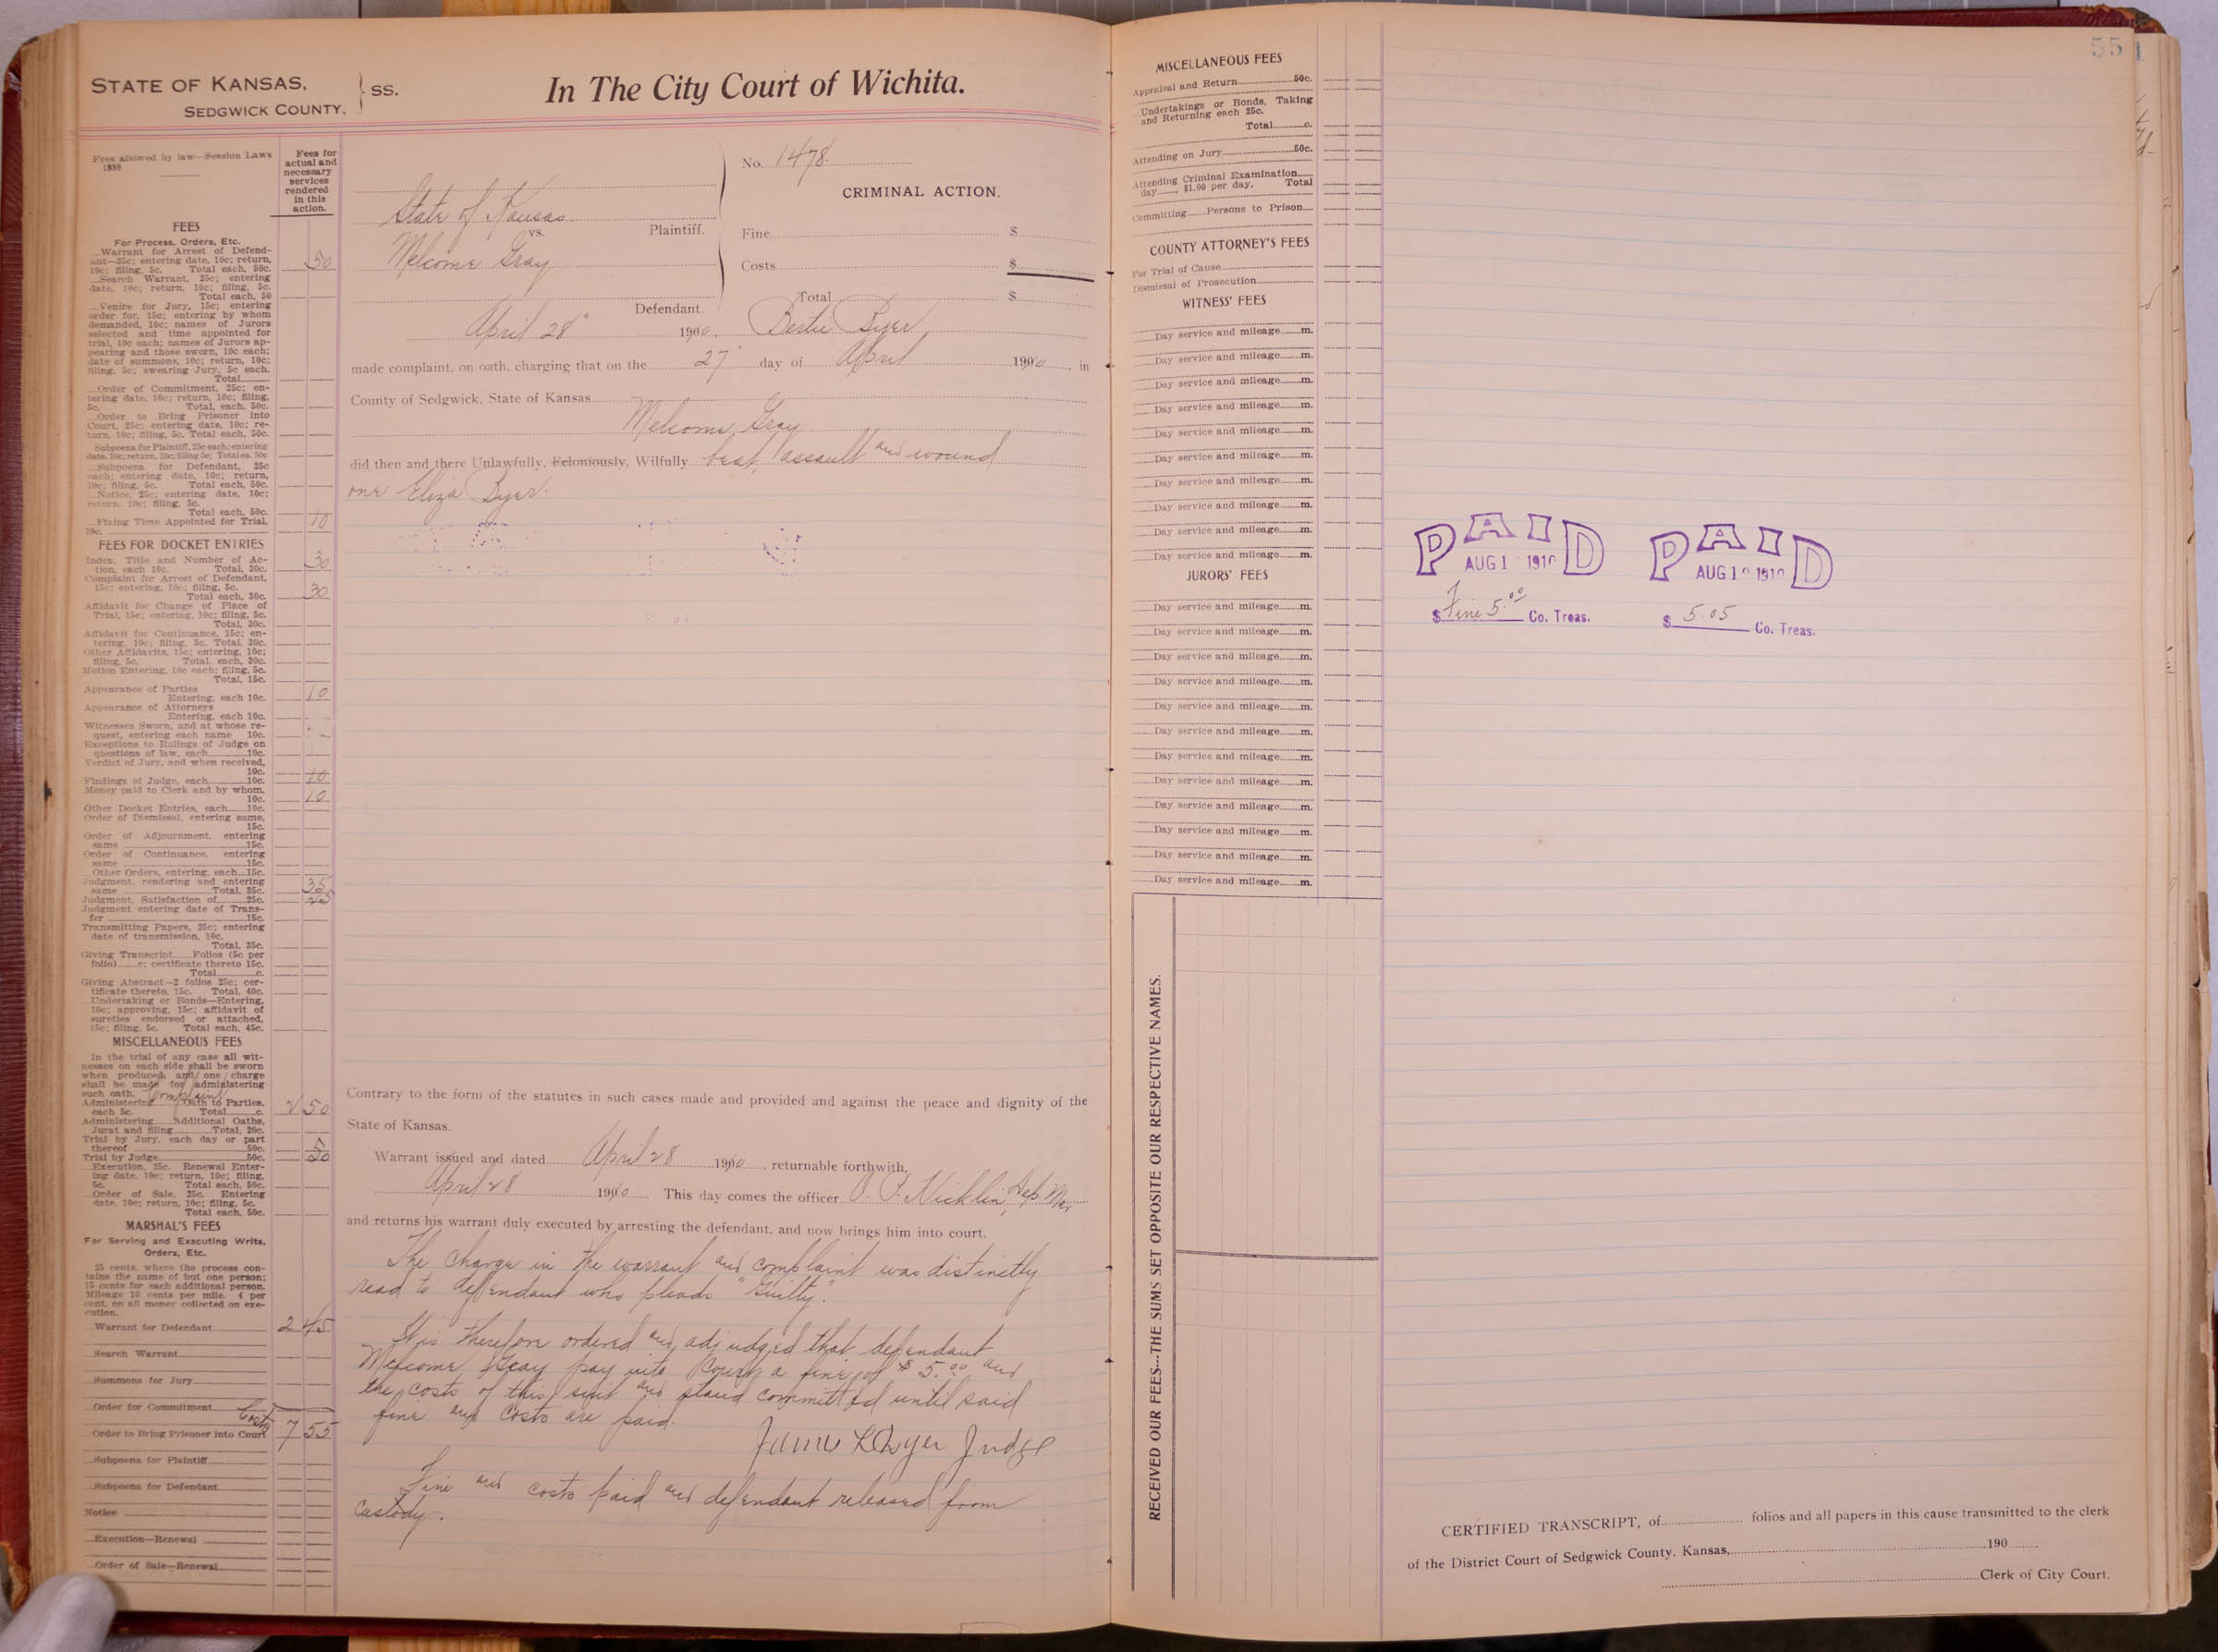 STATE OF KANSAS,
SEDGWICK COUNTY.
} SS.
In The City Court of Wichita.
Fees allowed by law—Session Laws
1899
Fees for
actual and
necessary
services
rendered
in this
action.
FEES
For Process, Orders, Etc.
Warrant for Arrest of Defend-
ant—25c; entering date, 10c; return,
10c; filing, 5c. Total each, 50c. 50
Search Warrant, 25c; entering
date, 10c; return, 10c; filing, 5c.
Total each, 50
Venire for Jury, 15c; entering
order for, 15c; entering by whom
demanded, 10c; names of Jurors
selected and time appointed for
trial, 10c each; names of Jurors ap-
pearing and those sworn, 10c each;
date of summons, 10c; return, 10c;
filing, 5c; swearing Jury, 5c each.
Total
Order of Commitment, 25c; en-
tering date, 10c; return, 10c; filing,
5c. Total, each, 50c.
Order to Bring Prisoner into
Court, 25c; entering date, 10c; re-
turn, 10c; filing, 5c. Total each, 50c.
Subpoena for Plaintiff, 25c each; entering
date, 10c; return, 10c; filing 5c; Total ea. 50c
Subpoena for Defendant, 25c
each; entering date, 10c; return,
10c; filing, 5c. Total each, 50c.
Notice, 25c; entering date, 10c;
return, 10c; filing, 5c.
Total each, 50c.
Fixing Time Appointed for Trial,
10c. 10
FEES FOR DOCKET ENTRIES
Index, Title and Number of Ac-
tion, each 10c. Total, 30c. 30
Complaint for Arrest of Defendant,
15c; entering, 10c; filing, 5c.
Total each, 30c. 30
Affidavit for Change of Place of
Trial, 15c; entering, 10c; filing, 5c.
Total, 30c.
Affidavit for Continuance, 15c; en-
tering, 10c; filing, 5c. Total, 30c.
Other Affidavits, 15c; entering, 10c;
filing, 5c. Total, each, 30c.
Motion Entering, 10c each; filing, 5c.
Total, 15c.
Appearance of Parties
Entering, each 10c. 10
Appearance of Attorneys
Entering, each 10c.
Witnesses Sworn, and at whose re-
quest, entering each name 10c.
Exceptions to Rulings of Judge on
questions of law, each 10c.
Verdict of Jury, and when received,
10c.
Findings of Judge, each 10c. 10
Money paid to Clerk and by whom,
10c. 10
Other Docket Entries, each 10c.
Order of Dismissal, entering same,
15c.
Order of Adjournment, entering
same 15c.
Order of Continuance, entering
same 15c.
Other Orders, entering, each 15c.
Judgment, rendering and entering
same Total, 35c. 35
Judgment, Satisfaction of 25c. 25
Judgment entering date of Trans-
fer 15c.
Transmitting Papers, 25c; entering
date of transmission, 10c.
Total, 35c.
Giving Transcript Folios (5c per
folio) c; certificate thereto 15c.
Total c.
Giving Abstract—2 folios 25c; cer-
tificate thereto, 15c. Total, 40c.
Undertaking or Bonds—Entering,
10c; approving, 15c; affidavit of
sureties endorsed or attached,
15c; filing, 5c. Total each, 45c.
MISCELLANEOUS FEES
In the trial of any case all wit-
nesses on each side shall be sworn
when produced, and one charge
shall be made for administering
such oath. Complaint
Administering Oath to Parties,
each 5c. Total c. 2 50
Administering Additional Oaths,
Jurat and filing Total, 20c.
Trial by Jury, each day or part
thereof 50c. 5
Trial by Judge 50c. 50
Execution, 25c. Renewal Enter-
ing date, 10c; return, 10c; filing,
5c. Total each, 50c.
Order of Sale, 25c. Entering
date, 10c; return, 10c; filing, 5c.
Total each, 50c.
MARSHAL'S FEES
For Serving and Executing Writs,
Orders, Etc.
25 cents, where the process con-
tains the name of but one person;
15 cents for each additional person.
Mileage 10 cents per mile. 4 per
cent. on all money collected on exe-
cution.
Warrant for Defendant 2 45
Search Warrant
Summons for Jury
Order for Commitment Costs
Order to Bring Prisoner into Court 7 55
Subpoena for Plaintiff
Subpoena for Defendant
Notice
Execution—Renewal
Order of Sale—Renewal
State of Kansas
vs. Plaintiff.
Welcome Gray
Defendant.
No. 1478.
CRIMINAL ACTION.
Fine $
Costs $
Total $
April 28" 1910. Bertie Byer
made complaint, on oath, charging that on the 27" day of April 1910, in
County of Sedgwick, State of Kansas
Welcome Gray
did then and there Unlawfully, Feloniously, Wilfully beat, assault and wound
one Eliza Byer.
Contrary to the form of the statutes in such cases made and provided and against the peace and dignity of the
State of Kansas.
Warrant issued and dated April 28 1910, returnable forthwith.
April 28 1910 This day comes the officer Nicklin, Dep. Mar
and returns his warrant duly executed by arresting the defendant, and now brings him into court.
The charge in the warrant and complaint was distinctly
read to defendant who pleads "Guilty".
It is therefore ordered and adjudged that defendant
Welcome Gray pay into Court a fine of $ 5.00 and
the costs of this suit and stand committed until said
fine and costs are paid.
James L Dyer Judge
Fine and costs paid and defendant released from
custody.
MISCELLANEOUS FEES
Appraisal and Return 50c.
Undertakings or Bonds, Taking
and Returning each 25c.
Total c.
Attending on Jury 50c.
Attending Criminal Examination
day , $1.00 per day. Total
Committing Persons to Prison
COUNTY ATTORNEY'S FEES
For Trial of Cause
Dismissal of Prosecution
WITNESS' FEES
Day service and mileage m.
Day service and mileage m.
Day service and mileage m.
Day service and mileage m.
Day service and mileage m.
Day service and mileage m.
Day service and mileage m.
Day service and mileage m.
Day service and mileage m.
Day service and mileage m.
JURORS' FEES
Day service and mileage m.
Day service and mileage m.
Day service and mileage m.
Day service and mileage m.
Day service and mileage m.
Day service and mileage m.
Day service and mileage m.
Day service and mileage m.
Day service and mileage m.
Day service and mileage m.
Day service and mileage m.
Day service and mileage m.
RECEIVED OUR FEES---THE SUMS SET OPPOSITE OUR RESPECTIVE NAMES.
55
PAID
AUG 1 1910
$ Fine 5.00 Co. Treas.
PAID
AUG 1 1910
$ 5.05 Co. Treas.
CERTIFIED TRANSCRIPT, of folios and all papers in this cause transmitted to the clerk
of the District Court of Sedgwick County, Kansas, 190
Clerk of City Court.